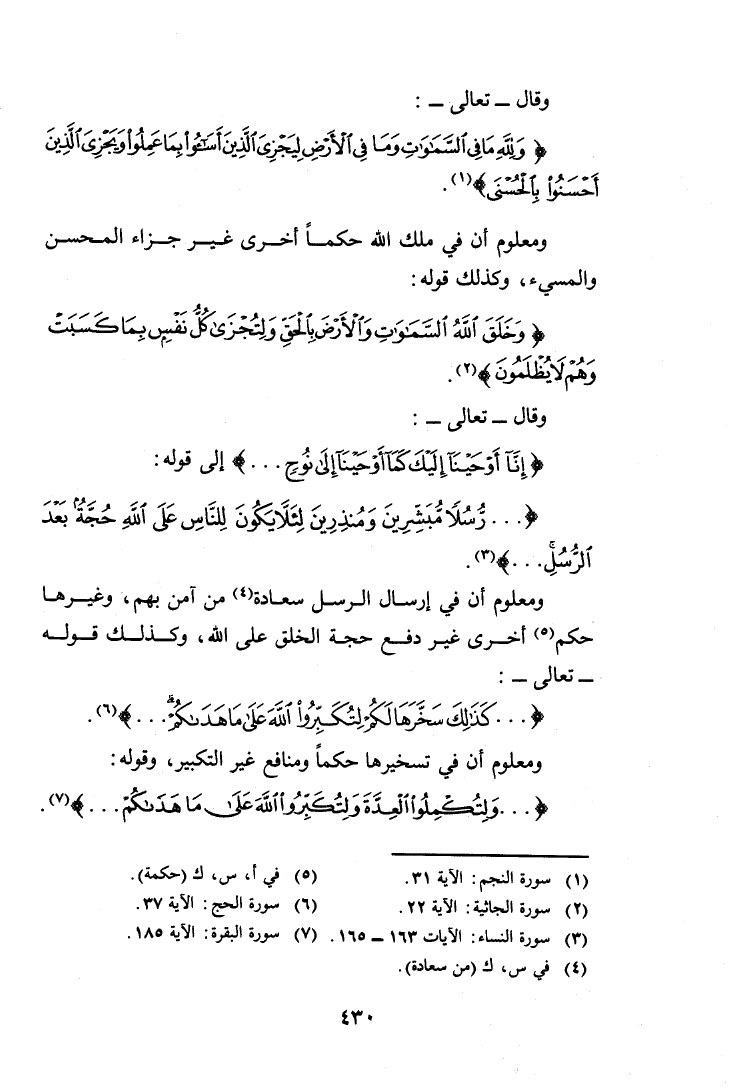 وقال ــ تعالى ــ :
﴿ وَلِلَّهِ مَا فِى ٱلسَّمَٰوَٰتِ وَمَا فِى ٱلْأَرْضِ لِيَجْزِىَ ٱلَّذِينَ أَسَٰٓـُٔوا۟ بِمَا عَمِلُوا۟ وَيَجْزِىَ ٱلَّذِينَ
أَحْسَنُوا۟ بِٱلْحُسْنَى ﴾(١).
ومعلوم أن في ملك الله حكمـاً أخـرى غيـر جـزاء المـحسـن
والمسيء، وكذلك قوله:
﴿ وَخَلَقَ ٱللَّهُ ٱلسَّمَٰوَٰتِ وَٱلْأَرْضَ بِٱلْحَقِّ وَلِتُجْزَىٰ كُلُّ نَفْسٍۭ بِمَا كَسَبَتْ
وَهُمْ لَا يُظْلَمُونَ ﴾(٢).
وقال ــ تعالى ــ :
﴿ إِنَّآ أَوْحَيْنَآ إِلَيْكَ كَمَآ أَوْحَيْنَآ إِلَىٰ نُوحٍ . . . ﴾ إلى قوله:
﴿ . . . رُّسُلًا مُّبَشِّرِينَ وَمُنذِرِينَ لِئَلَّا يَكُونَ لِلنَّاسِ عَلَى ٱللَّهِ حُجَّةٌۢ بَعْدَ
ٱلرُّسُلِۚ . . . ﴾(٣).
ومعلوم أن في إرسـال الـرسـل سعـادة(٤) من آمن بهم، وغيـرهـا
حكم(٥) أخـرى غير دفـع حجـة الخلق على الله، وكـذلـك قـولـه
ــ تعالى ــ :
﴿ . . . كَذَٰلِكَ سَخَّرَهَا لَكُمْ لِتُكَبِّرُوا۟ ٱللَّهَ عَلَىٰ مَا هَدَىٰكُمْۗ . . . ﴾(٦).
ومعلوم أن في تسخيرها حكماً ومنافع غير التكبير، وقوله:
﴿ . . . وَلِتُكْمِلُوا۟ ٱلْعِدَّةَ وَلِتُكَبِّرُوا۟ ٱللَّهَ عَلَىٰ مَا هَدَىٰكُمْ . . . ﴾(٧).
(١) سورة النجم: الآية ٣١.
(٢) سورة الجاثية: الآية ٢٢.
(٣) سورة النساء: الآيات ١٦٣ ــ ١٦٥.
(٤) في س، ك (من سعادة).
(٥) في أ، س، ك (حكمة).
(٦) سورة الحج: الآية ٣٧.
(٧) سورة البقرة: الآية ١٨٥.
٤٣٠